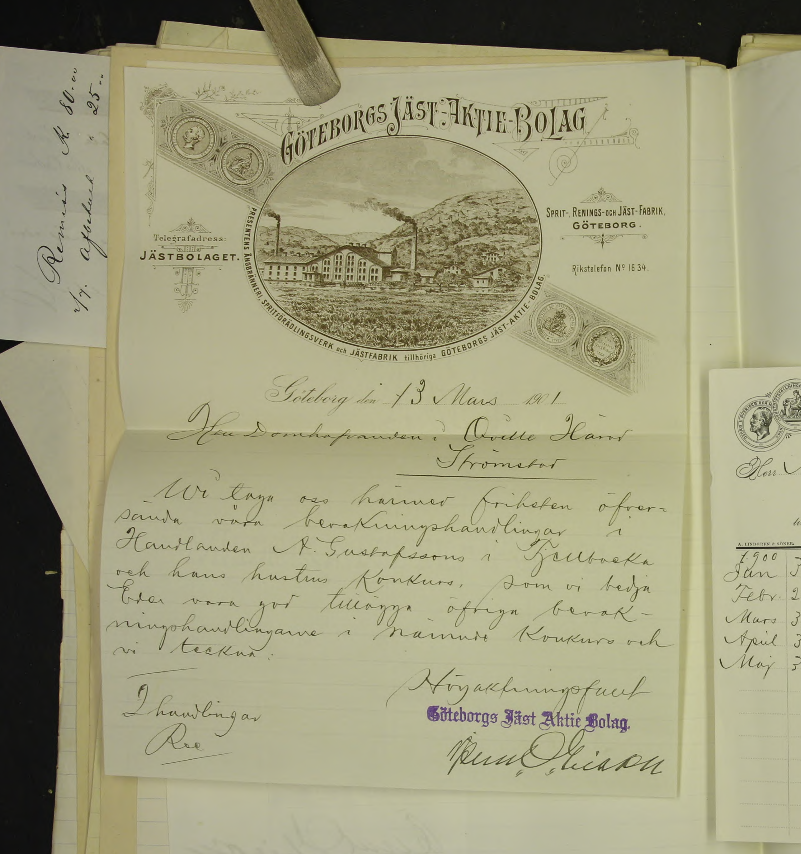 Remiss K. 80.00
2/7. afbetal " 25..
GÖTEBORGS JÄST-AKTIE-BOLAG
Telegrafadress:
JÄSTBOLAGET.
SPRIT-, RENINGS- OCH JÄST-FABRIK.
GÖTEBORG.
Rikstelefon No 1634.
PRESENTENS ÅNGBRÄNNERI, SPRITFÖRÄDLINGSVERK och JÄSTFABRIK tillhöriga GÖTEBORGS JÄST-AKTIE-BOLAG.
Göteborg den 13 Mars 1901
Herr Domhafvanden i Qville Härad
Strömstad
Wi taga oss härmed friheten öfver-
sända våra bevakningshandlingar i
Handlanden A. Gustafssons i Fjellbacka
och hans hustrus Konkurs, som vi bedja
Eder vara god tillägga öfriga bevak-
ningshandlingarne i nämnde Konkurs och
vi teckna:
Högaktningsfullt
Göteborgs Jäst Aktie Bolag.
2 handlingar
Rec
Herr
A. LINDGREN & SÖNER.
1900
Jan 3
Febr. 2
Mars 3
April 3
Maj 3